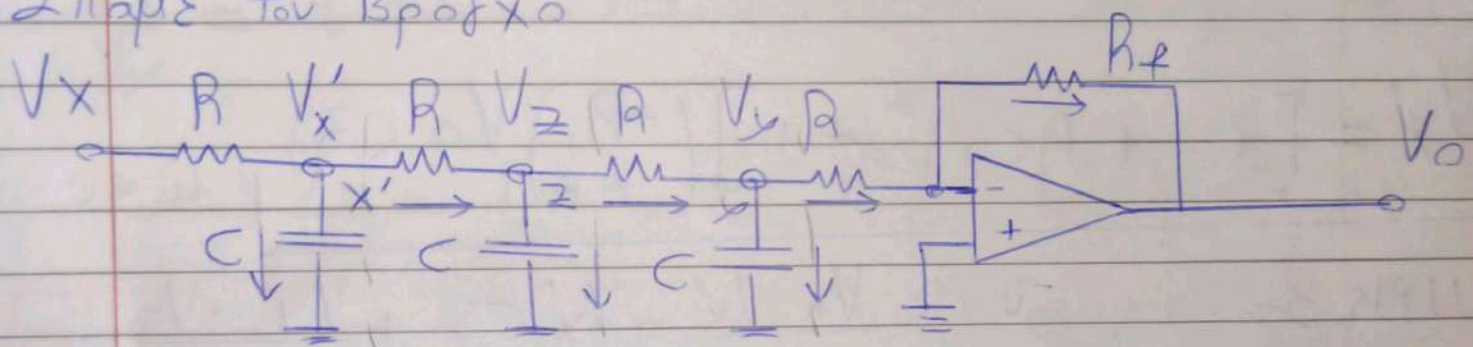 τον βρόγχο
Vx R Vx' R Vz R Vy R Rf Vo
x' z y - +
C C C